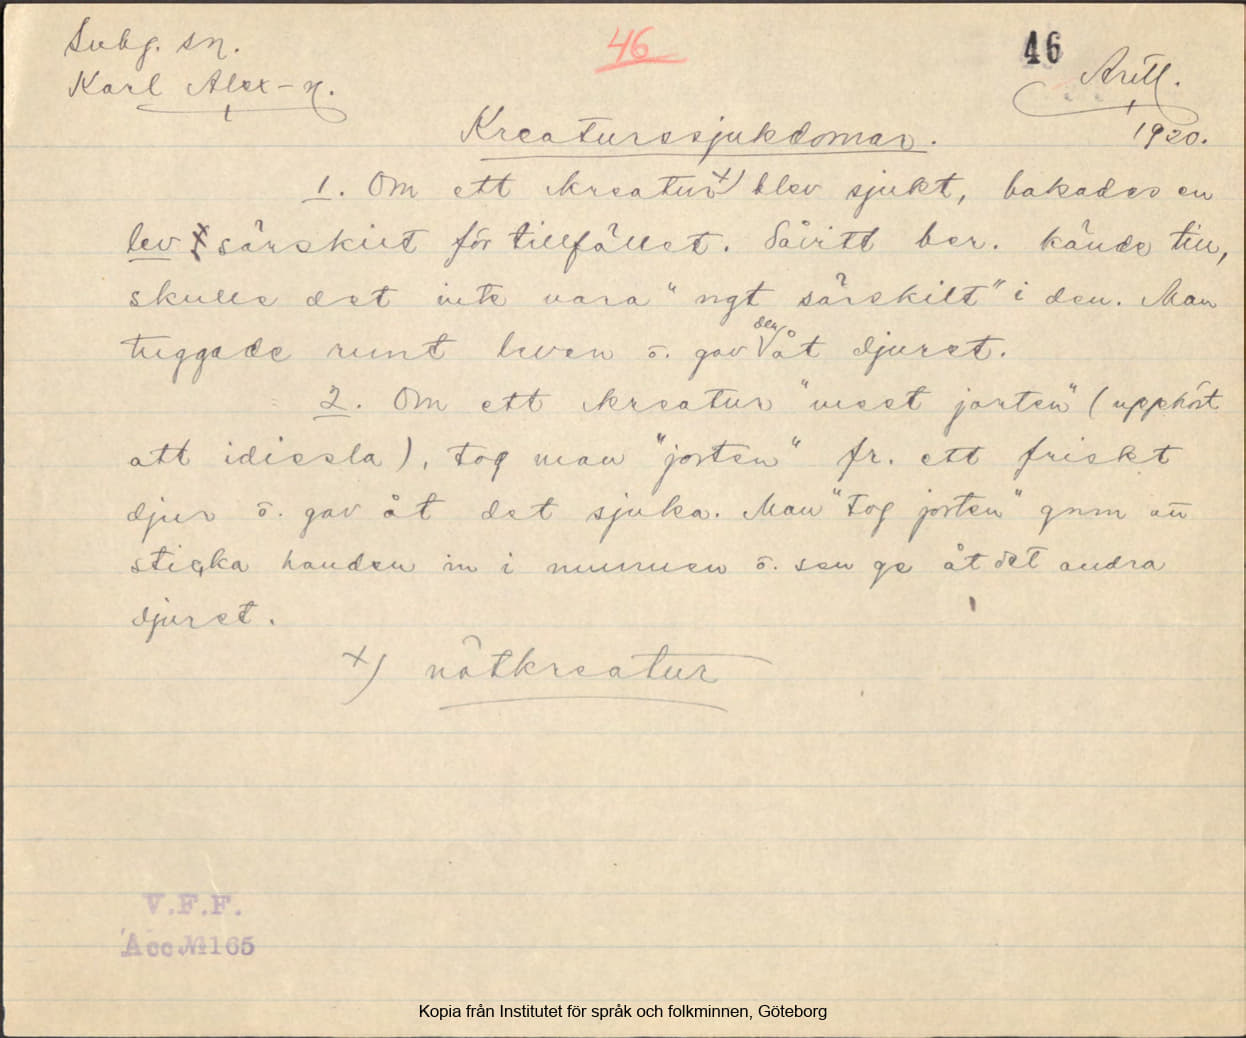 Subg. sn.
46
46
Karl Alex-n.
Antt.
Kreaturssjukdomar.
1920.
1. Om ett kreatur x) blev sjukt, bakades en
lev särskilt för tillfället. Såvitt ber. kände till,
skulle det inte vara "ngt särskilt" i den. Man
tuggade runt leven o. gav den åt djuret.
2. Om ett kreatur "mest jorten" (upphört
att idissla), tog man "jorten" fr. ett friskt
djur o. gav åt det sjuka. Man "tog jorten" gnm att
sticka handen in i munnen o. sen ge åt det andra
djuret.
x) nötkreatur
V.F.F.
Acc № 165
Kopia från Institutet för språk och folkminnen, Göteborg